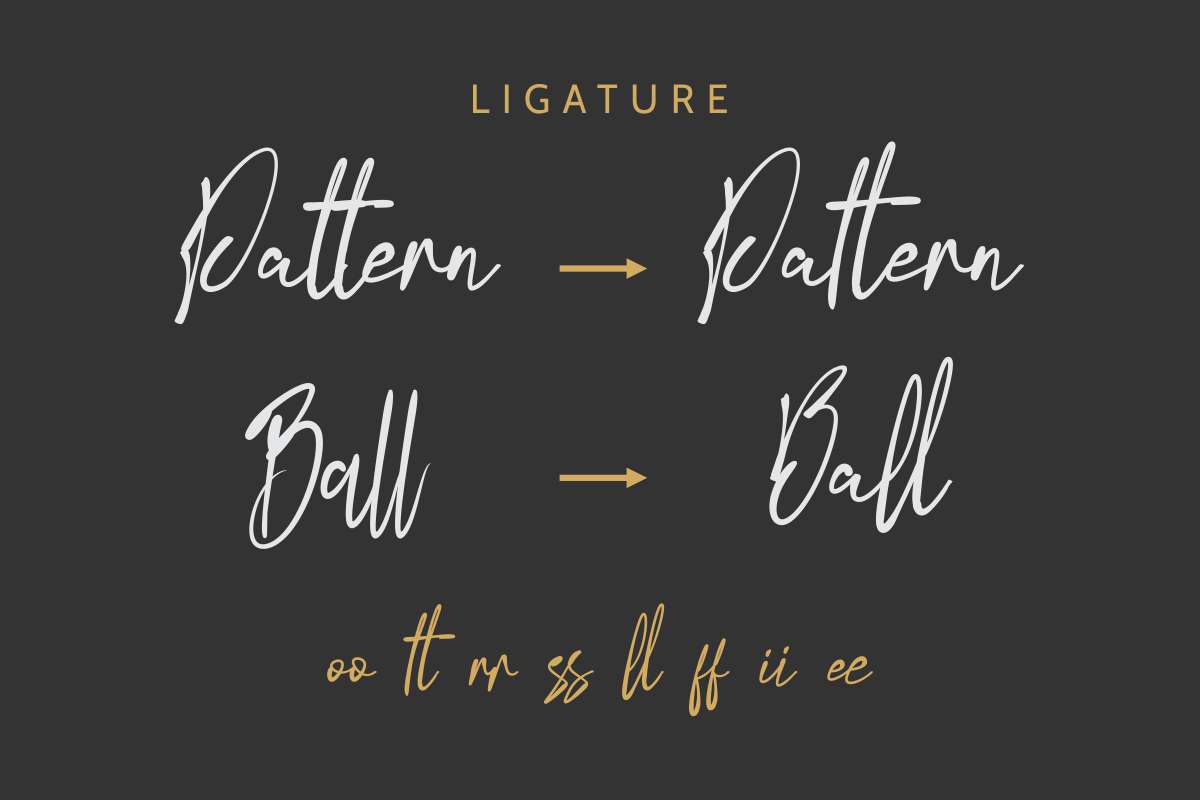 LIGATURE
Pattern Pattern
Ball Ball
oo tt rr ss ll ff ii ee